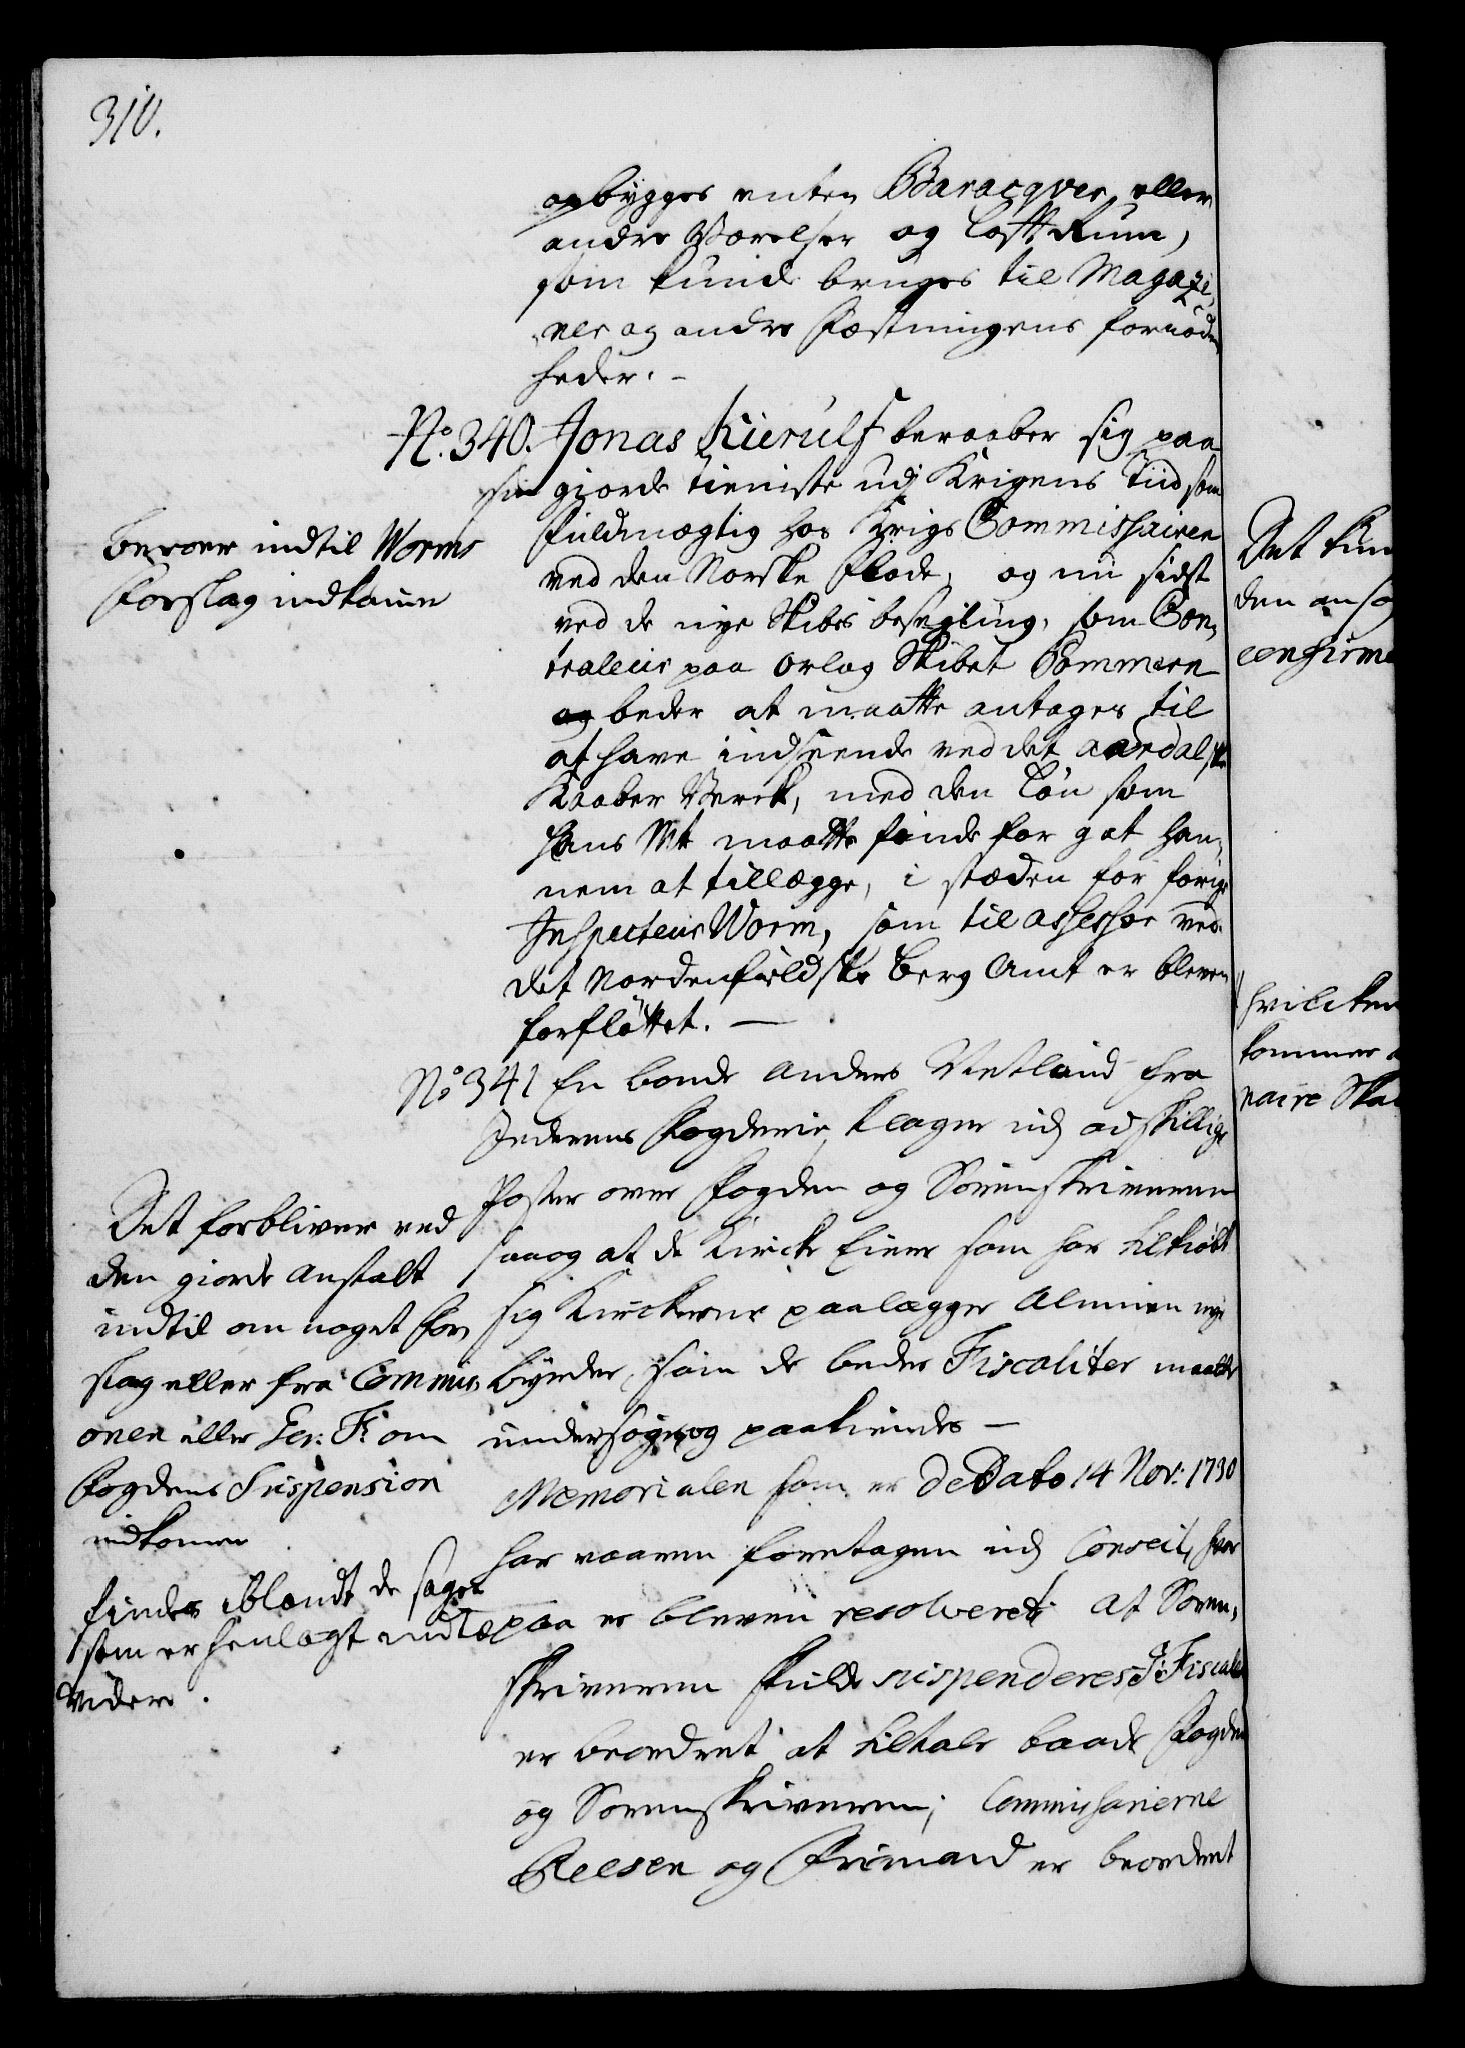 310.
opbygges enten Baracqver eller
andre Værelser og Lofft Rum,
som kunde bruges til Magazi-
ner og andre Fæstningens fornøden
heder. -
No. 340. Jonas Kierulf beraaber sig paa
sin giorde tieniste udj Krigens Tiid som
Fuldmægtig hos Krigs Commissairen
ved den Norske Flode, og nu sidst
ved de nye Skibes besegling, som Con-
traleur paa Orlog Skibet Pommern
og beder at maatte antages til
at have indseende ved det Aardalske
Kaaber Verck, med den Løn som
Hans Mt maatte finde for got han-
nem at tillægge, i stæden for forige
Inspecteur Worm, som til Assessor ved
det Nordenfieldske Berg Amt er bleven
forflöttet. -
Beroer indtil Worms
Forslag indkomr
No 341 En bonde Anders Vetland fra
Jederens Fogderie klager udj adskillige
Poster over Fogden og Sorenskriveren
saaog at de Kircke Eiere som har tilkiøbt
sig Kirckerne paalægger Almuen nye
byrder, som de beder Fiscaliter maatte
undersøges og paakiendes -
Memorialen som er De Dato 14 Nov: 1730
har vaaren foretagen udj Conseil, hvor
paa er bleven resolveret at Soren-
skriveren skulde suspenderes, G: Fiscalen
er beordret at tiltale baade Fogden
og Sorenskriveren; Commissarierne
Reesen og Frimand er beordret
Det forbliver ved
den giorde Anstalt
indtil om noget For
slag eller fra Commis
onen eller Gen: F: om
Fogdens Suspension
indkomr
findes iblandt de sager
som er henlagt indtil
videre.
Det kun
den anso
confirme
hvilcken
kommer
naire Ska